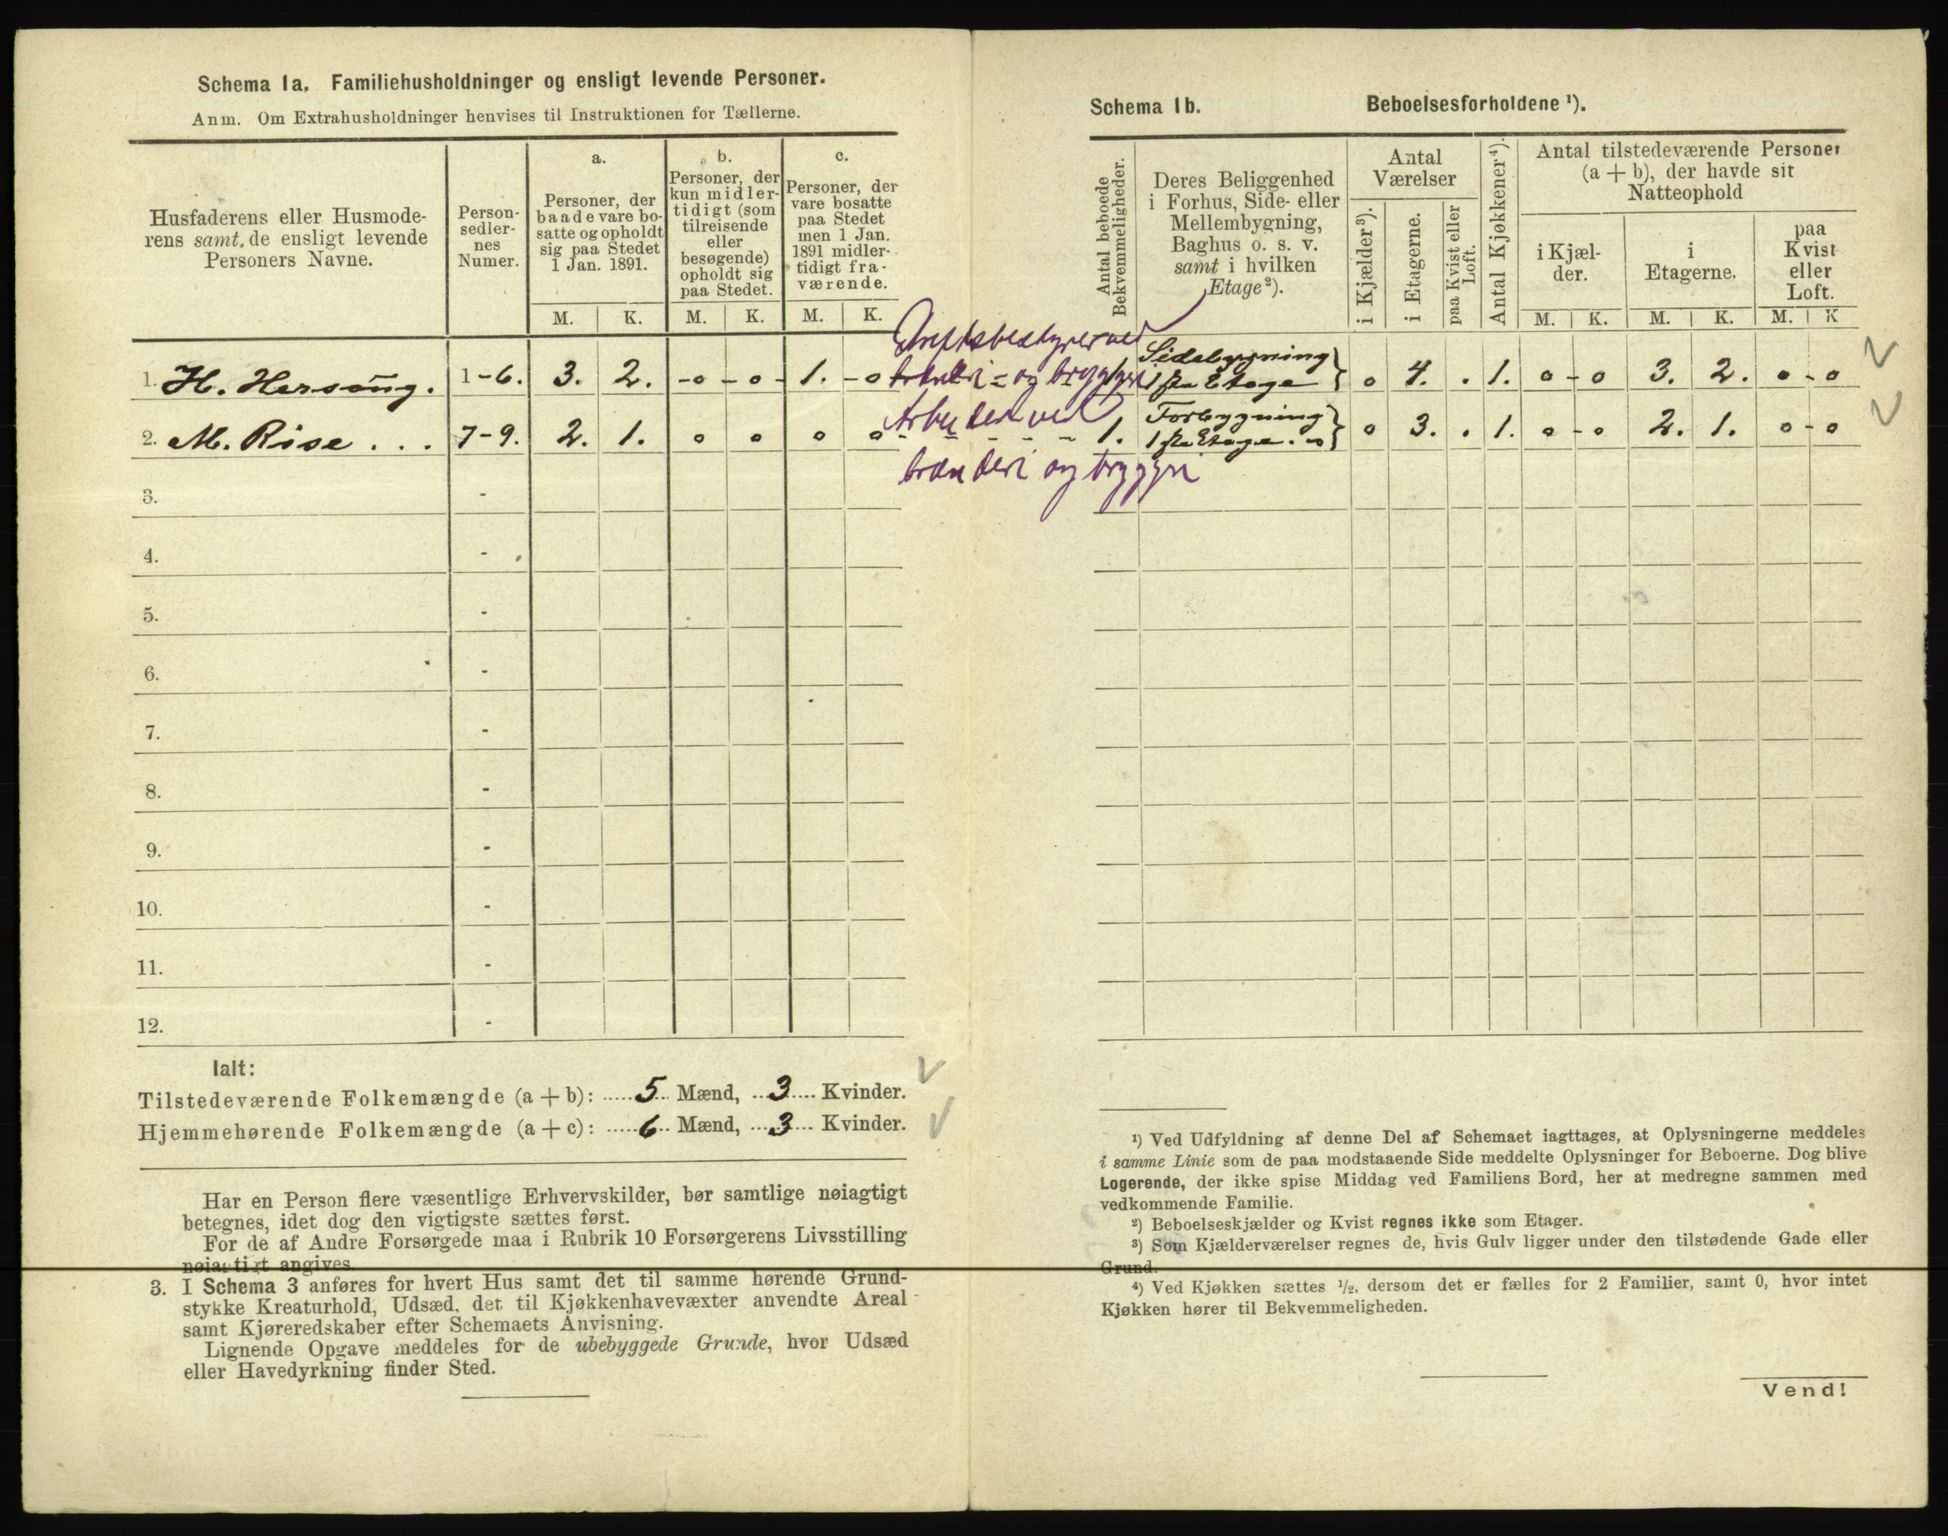 Schema 1a. Familiehusholdninger og ensligt levende Personer.
Anm. Om Extrahusholdninger henvises til Instruktionen for Tællerne.
Husfaderens eller Husmoderens samt de ensligt levende Personers Navne.
Personsedlernes Numer.
a. Personer, der baade vare bosatte og opholdt sig paa Stedet 1 Jan. 1891.
b. Personer, der kun midlertidigt (som tilreisende eller besøgende) opholdt sig paa Stedet.
c. Personer, der vare bosatte paa Stedet men 1 Jan. 1891 midlertidigt fraværende.
M. K. M. K. M. K.
1. H. Hersoug. 1-6. 3. 2. -o-o- 1. -o
2. M. Röse . . . 7-9. 2. 1. o o o o
3. -
4. -
5. -
6. -
7. -
8. -
9. -
10. -
11. -
12. -
Ialt:
Tilstedeværende Folkemængde (a + b): 5 Mænd, 3 Kvinder.
Hjemmehørende Folkemængde (a + c): 6 Mænd, 3 Kvinder.
Har en Person flere væsentlige Erhvervskilder, bør samtlige nøiagtigt
betegnes, idet dog den vigtigste sættes først.
For de af Andre Forsørgede maa i Rubrik 10 Forsørgerens Livsstilling
nøiagtigt angives.
3. I Schema 3 anføres for hvert Hus samt det til samme hørende Grund-
stykke Kreaturhold, Udsæd, det til Kjøkkenhavevæxter anvendte Areal
samt Kjøreredskaber efter Schemaets Anvisning.
Lignende Opgave meddeles for de ubebyggede Grunde, hvor Udsæd
eller Havedyrkning finder Sted.
Driftsbestyrer ved
brænderi - og bryggeri
Arbeider ved
brænderi og bryggeri
Schema 1b. Beboelsesforholdene ¹).
Antal beboede Bekvemmeligheder.
Deres Beliggenhed i Forhus, Side- eller Mellembygning, Baghus o. s. v. samt i hvilken Etage²).
Antal Værelser
i Kjælder³).
i Etagerne.
paa Kvist eller Loft.
Antal Kjøkkener⁴).
Antal tilstedeværende Personer (a + b), der havde sit Natteophold
i Kjælder.
i Etagerne.
paa Kvist eller Loft.
M. K. M. K. M. K
1. Sidebygning 1ste Etage } o 4. . 1. o-o 3. 2. o-o
1. Forbygning 1ste Etage. } o 3. . 1. o-o 2. 1. o-o
¹) Ved Udfyldning af denne Del af Schemaet iagttages, at Oplysningerne meddeles
i samme Linie som de paa modstaaende Side meddelte Oplysninger for Beboerne. Dog blive
Logerende, der ikke spise Middag ved Familiens Bord, her at medregne sammen med
vedkommende Familie.
²) Beboelseskjælder og Kvist regnes ikke som Etager.
³) Som Kjælderværelser regnes de, hvis Gulv ligger under den tilstødende Gade eller
Grund.
⁴) Ved Kjøkken sættes ¹/₂, dersom det er fælles for 2 Familier, samt 0, hvor intet
Kjøkken hører til Bekvemmeligheden.
Vend!